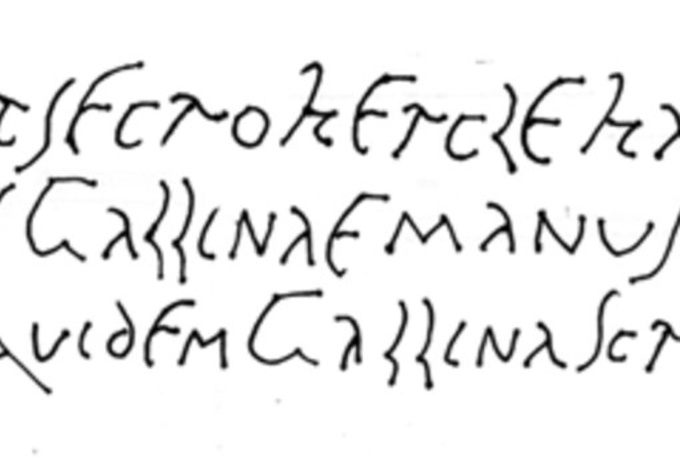 PSECROHERCLEHA
SGALLINAEMANUS
QUIDEMGALLINASCR